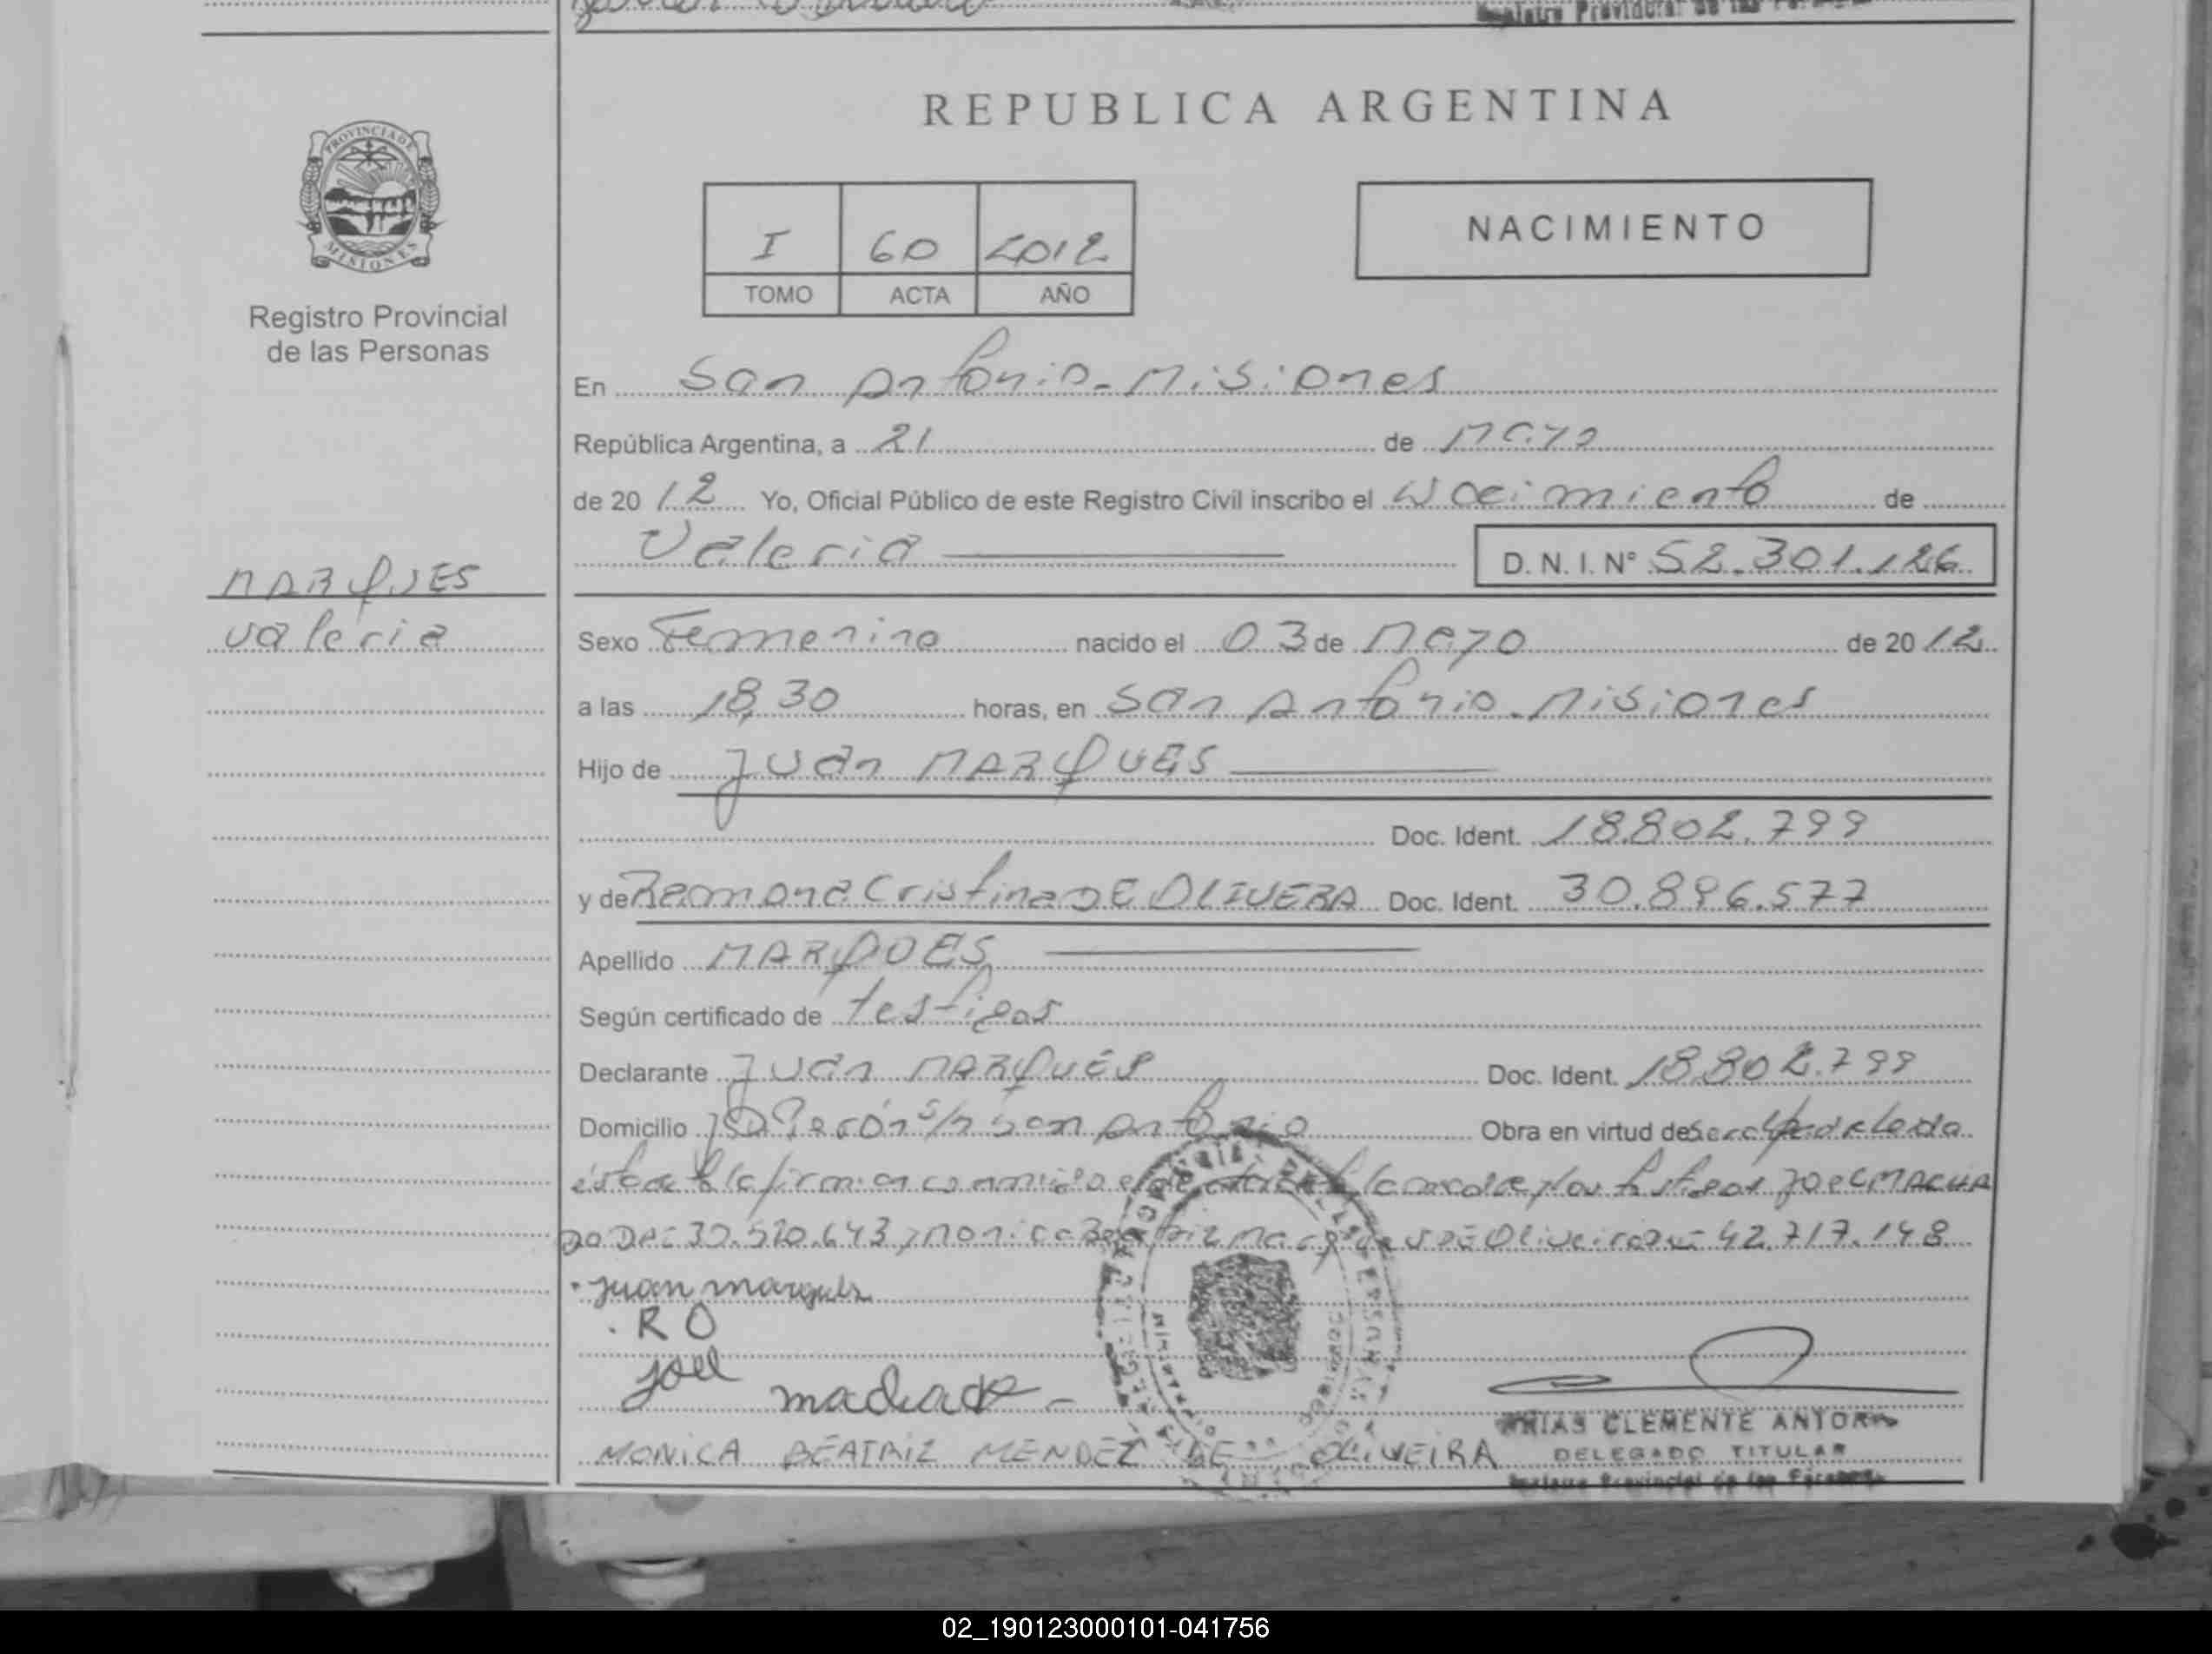 REPUBLICA ARGENTINA
PROVINCIA DE
MISIONES
Registro Provincial
de las Personas
I 60 2012
TOMO ACTA AÑO
NACIMIENTO
En San Antonio - Misiones
República Argentina, a 21 de Mayo
de 2012 Yo, Oficial Público de este Registro Civil inscribo el Nacimiento de
Valeria D. N. I. Nº 52.301.126
MARQUES
Valeria
Sexo Femenino nacido el 03 de Mayo de 2012
a las 18,30 horas, en San Antonio - Misiones
Hijo de Juan MARQUES
Doc. Ident. 18.802.799
y de Ramona Cristina DE OLIVERA Doc. Ident. 30.896.577
Apellido MARQUES
Según certificado de testigos
Declarante Juan MARQUES Doc. Ident. 18.802.799
Domicilio J D Perón s/n San Antonio Obra en virtud de
testigos Joel MACHA
DO 643 Monica Beatriz Oliveira 42.717.148
Juan marques
R O
Joel
machado
MONICA BEATRIZ MENDEZ DE OLIVEIRA
CLEMENTE ANTON
DELEGADO TITULAR
Registro Provincial de las Personas
02_190123000101-041756